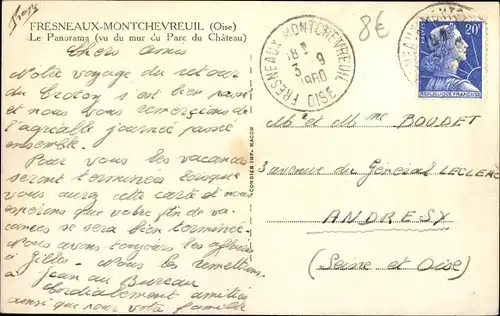 FRESNEAUX-MONTCHEVREUIL (Oise)
Le Panorama (vu du mur du Parc du Château)
8€
Chers Amis
Notre voyage du retour
du Crotoy s'est bien passé
et nous vous remercions de
l'agréable journée passée
ensemble.
Pour vous les vacances
seront terminées lorsque
vous aurez cette carte et nous
espérons que votre fin de va-
cances se sera bien terminée.
Nous avons toujours les affaires
à Gilles. Nous les remettrons
à Jean au Bureau
Cordialement amitiés
ainsi que pour votre famille
COMBIER IMP. MACON
FRESNEAUX MONTCHEVREUIL
18 H
3 - 9
1960
OISE
20F
REPUBLIQUE FRANÇAISE
Mr et Mme BOUDET
3 avenue du Général LECLERC
ANDRESY
(Seine et Oise)